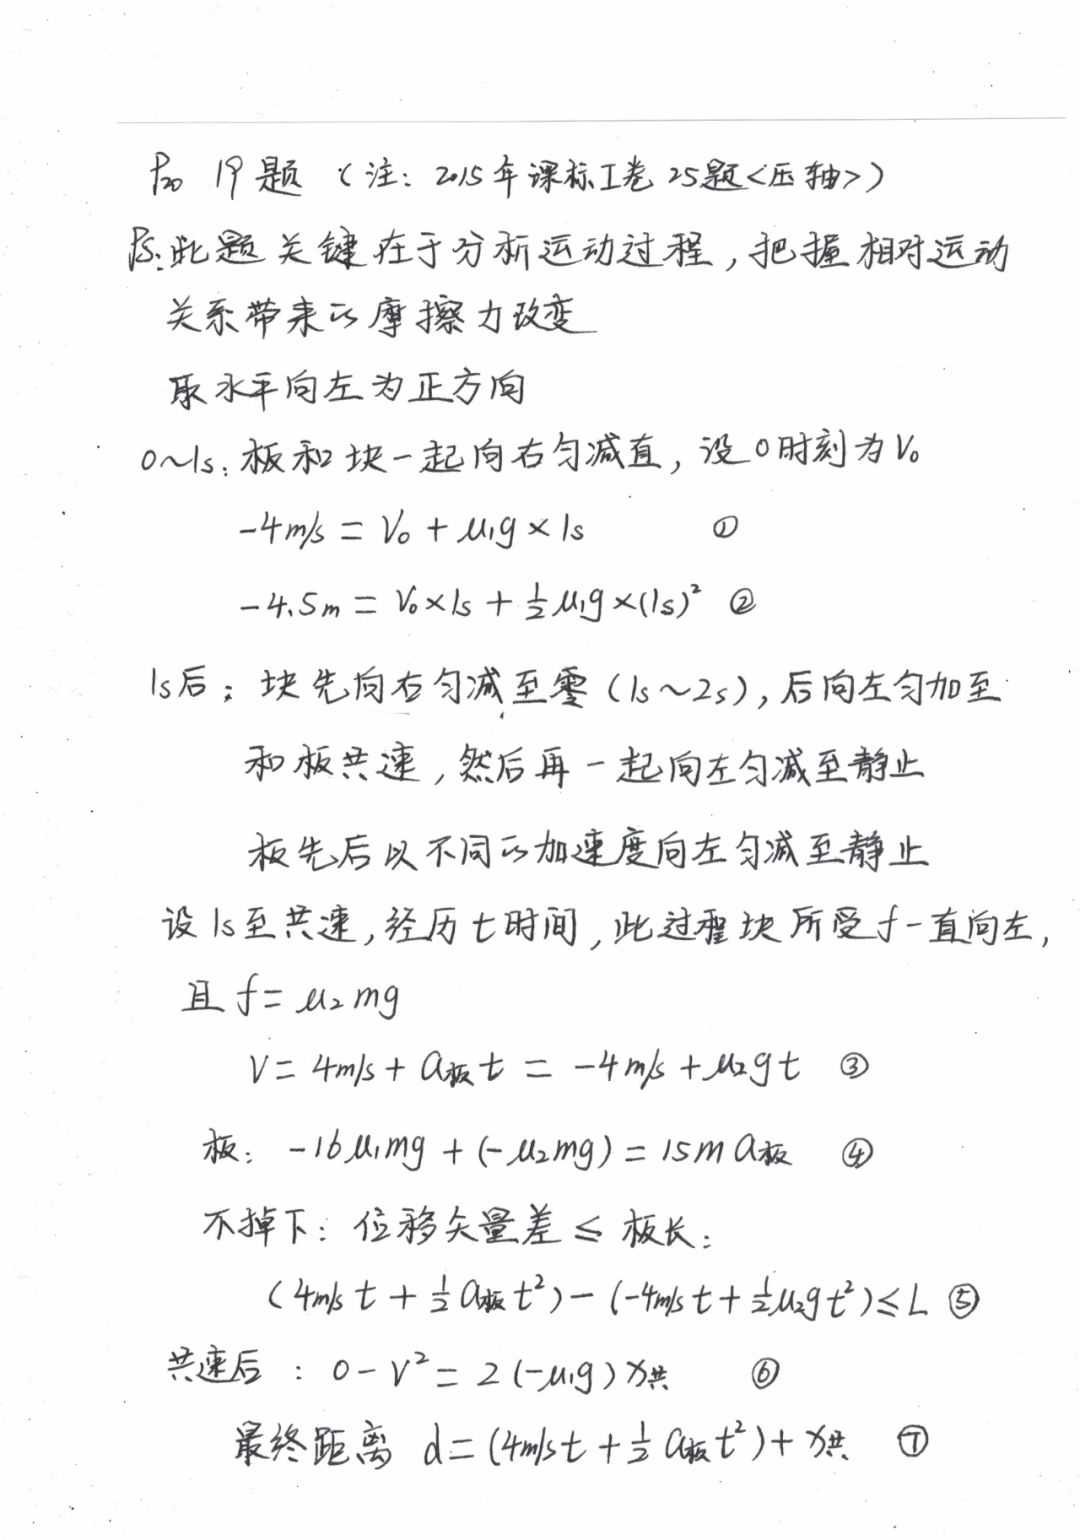 P20 19题 (注: 2015年课标I卷25题<压轴>)
Ps: 此题关键在于分析运动过程, 把握相对运动
关系带来的摩擦力改变
取水平向左为正方向
0~1s: 板和块一起向右匀减直, 设0时刻为V₀
-4m/s = V₀ + μ₁g × 1s ①
-4.5m = V₀×1s + ½μ₁g×(1s)² ②
1s后: 块先向右匀减至零(1s~2s), 后向左匀加至
和板共速, 然后再一起向左匀减至静止
板先后以不同的加速度向左匀减至静止
设1s至共速, 经历t时间, 此过程块所受f一直向左,
且f = μ₂mg
V = 4m/s + a板t = -4m/s + μ₂gt ③
板: -16μ₁mg + (-μ₂mg) = 15m a板 ④
不掉下: 位移矢量差 ≤ 板长:
(4m/s t + ½a板t²) - (-4m/s t + ½μ₂gt²) ≤ L ⑤
共速后: 0 - V² = 2(-μ₁g)x共 ⑥
最终距离 d = (4m/s t + ½a板t²) + x共 ⑦